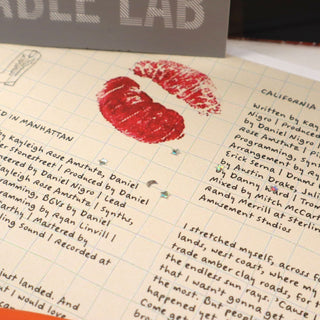 ABLE LAB
D IN MANHATTAN
Kayleigh Rose Amstutz, Daniel
er Stonestreet | Produced by Daniel
neered by Daniel Nigro | Lead
ayleigh Rose Amstutz | Synths,
ramming, BGVs by Daniel
ramming by Ryan Linvill |
arthy | Mastered by
ling Sound | Recorded at
just landed. And
ut I would love
CALIFORNIA
Written by Kay
Nigro | Produced
by Daniel Nigro
Rose Amstutz
Programming, Syn
Arrangement by Ry
Erick Serna | Drum
by Austin Drake, Jul
by Danny Ward | Trom
Mixed by Mitch McCart
Randy Merrill at Sterlin
Amusement Studios
I stretched myself, across fo
lands, west coast, where my
trade amber clay roads, for t
the endless sun rays. 'Cause
that I wasn't gonna get
happened yet
the most. But people
Come get